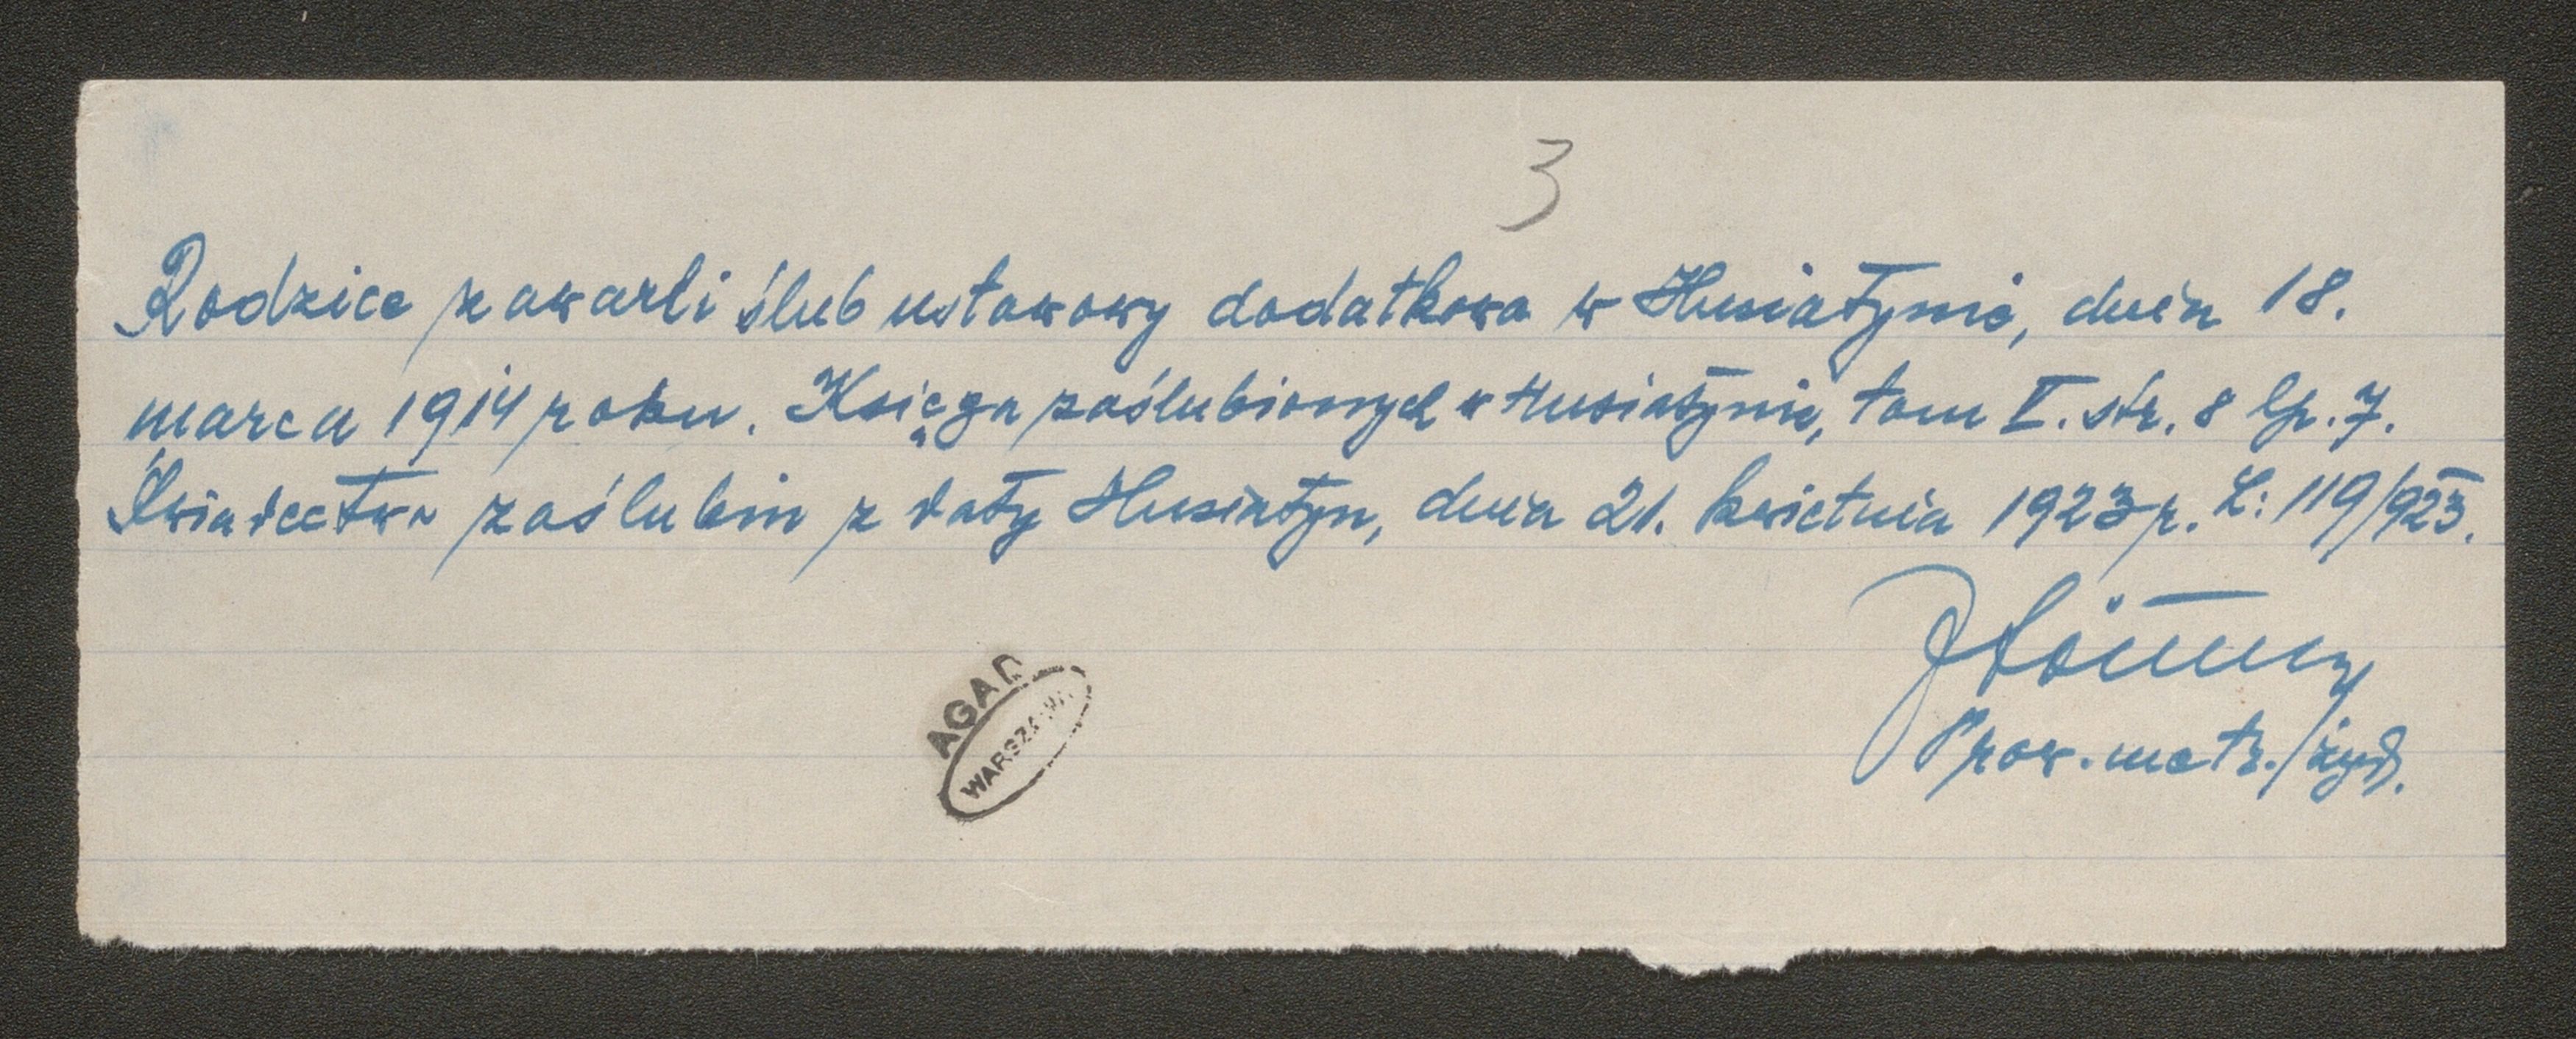 3
Rodzice zawarli ślub ustawowy dodatkowo w Husiatynie, dnia 18.
marca 1914 roku. Księga zaślubionych w Husiatynie, tom I. str. 8 lp. 7.
Świadectwo zaślubin z daty Husiatyn, dnia 21. kwietnia 1923 r. L: 119/923.
Prow. metr. żyd.
AGAD
WARSZAWA